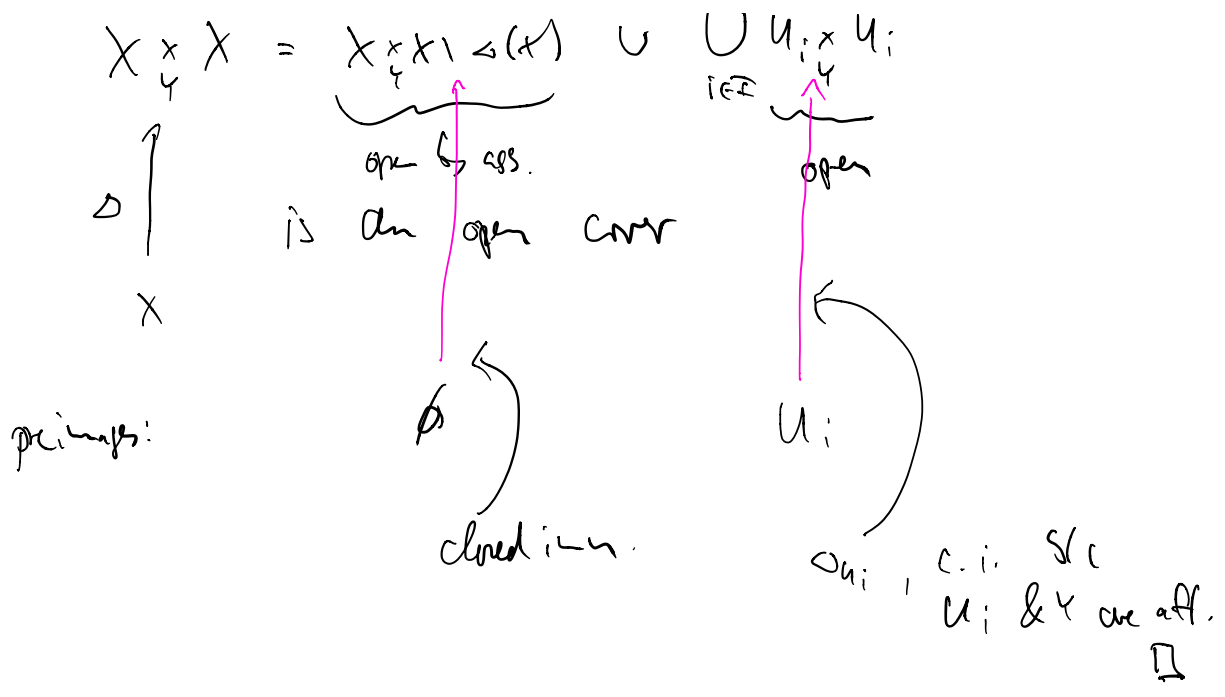 X ×_Y X = X ×_Y X \ Δ(X) ∪ ⋃_{i∈I} U_i ×_Y U_i
open by ass.
open
Δ
is an open cover
X
preimages:
∅
U_i
closed imm.
Δ_{U_i}, c.i. b/c
U_i & Y are aff.
□